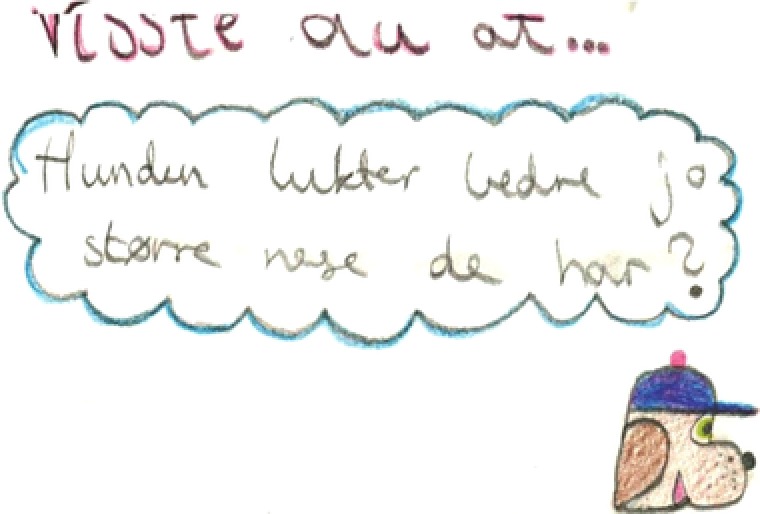 Visste du at...
Hunden lukter bedre jo
større nese de har?